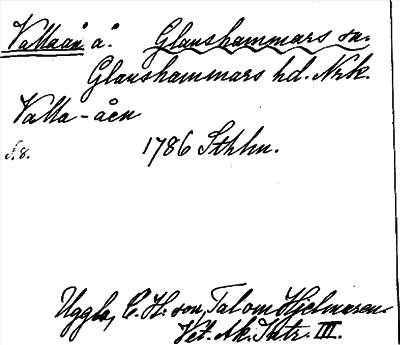 Vallaån å. Glanshammars sn.
Glanshammars hd. Nrk.
Valla-åen
s. 8.
1786 Sthlm.
Uggla, C. H:son, Tal om Hjelmaren.
Vet. Ak. Intr. III.